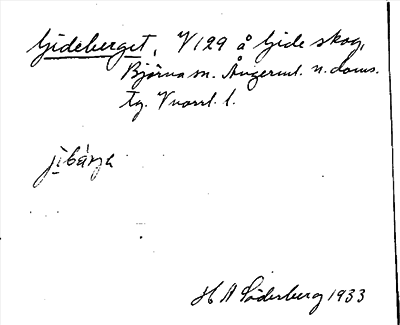 Gideberget, V129 å Gide skog,
Björna sn. Ångerml. n. doms.
tg. Vnorrl. l.
jibärje
H A Söderberg 1933